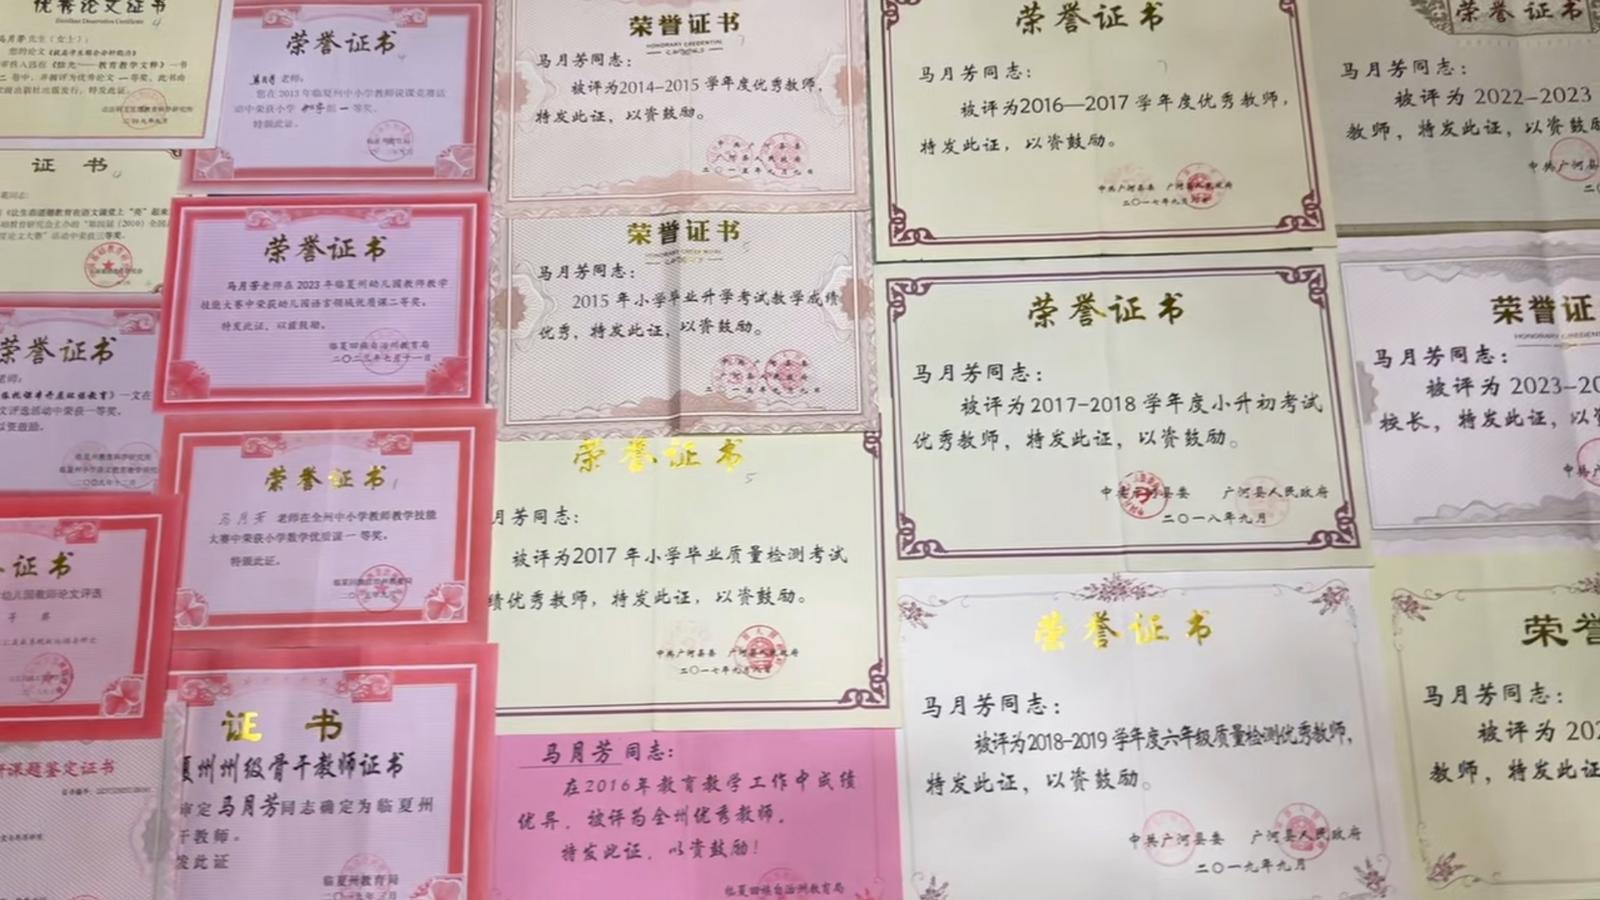 优秀论文证书
您的论文《提高学生概念分析能力》
荣誉证书
老师:
您在2013年临夏州中小学教师说课竞赛活
动中荣获小学 组一等奖。
特颁此证。
证书
荣誉证书
马月芳老师在2023年临夏州幼儿园教师教学
技能大赛中荣获幼儿园语言领域优质课二等奖。
特发此证,以兹鼓励。
临夏回族自治州教育局
二〇二三年七月十一日
荣誉证书
老师:
一文在
文评选活动中荣获一等奖,
以资鼓励。
荣誉证书
马月芳 老师在全州中小学教师教学技能
大赛中荣获小学数学优质课一等奖。
特颁此证。
证书
幼儿园教师论文评选
证书
夏州州级骨干教师证书
审定马月芳同志确定为临夏州
干教师。
发此证
临夏州教育局
课题鉴定证书
荣誉证书
HONORARY CREDENTIAL
马月芳同志:
被评为2014-2015学年度优秀教师,
特发此证,以资鼓励。
中共广河县委
广河县人民政府
二〇一五年九月九日
荣誉证书
马月芳同志:
2015年小学毕业升学考试教学成绩
优秀,特发此证,以资鼓励。
二〇一五年九月九日
荣誉证书
月芳同志:
被评为2017年小学毕业质量检测考试
绩优秀教师,特发此证,以资鼓励。
中共广河县委 广河县人民政府
二〇一七年九月八日
马月芳同志:
在2016年教育教学工作中成绩
优异,被评为全州优秀教师。
特发此证,以资鼓励!
临夏回族自治州教育局
荣誉证书
马月芳同志:
被评为2016—2017学年度优秀教师,
特发此证,以资鼓励。
中共广河县委 广河县人民政府
二〇一七年九月
荣誉证书
马月芳同志:
被评为2017-2018学年度小升初考试
优秀教师,特发此证,以资鼓励。
中共广河县委 广河县人民政府
二〇一八年九月
荣誉证书
马月芳同志:
被评为2018-2019学年度六年级质量检测优秀教师,
特发此证,以资鼓励。
中共广河县委 广河县人民政府
二〇一九年九月
荣誉证书
马月芳同志:
被评为2022-2023
教师,特发此证,以资鼓励
中共广河县
荣誉证
马月芳同志:
被评为2023-20
校长,特发此证,以
中共
荣誉
马月芳同志:
被评为202
教师,特发此证